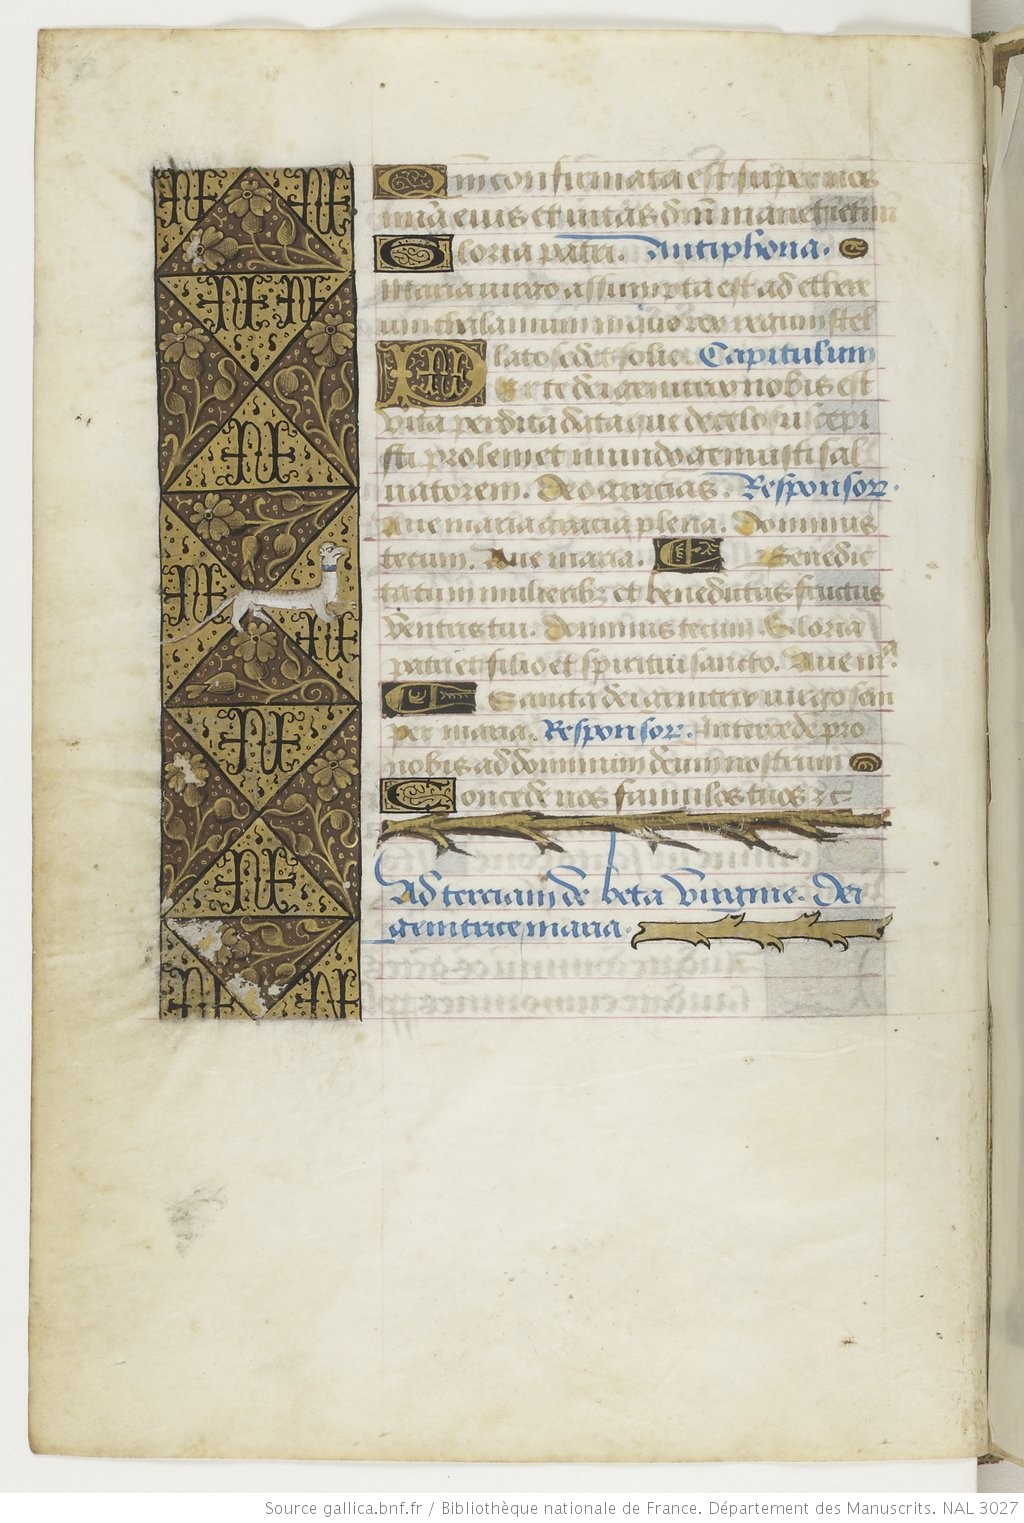 Qm confirmata est super nos
mīa eius et ueritas dn̄i manet
Gloria patri. Antiphona.
Maria uirgo assumpta est ad ethere
um thalamum in quo rex regum stel
lato sedet solio. Capitulum
Per te dei genitrix nobis est
vita perdita data que de celo suscepi
sti prolem et mundo genuisti sal
uatorem. Deo gracias. Responsor.
Aue maria gracia plena. Dominus
tecum. Aue maria. Benedic
ta tu in mulieribz et benedictus fructus
ventris tui. Dominus tecum. Gloria
patri et filio et spiritui sancto. Aue mᵃ.
Sancta dei genitrix uirgo sem
per maria. Responsor. Intercede pro
nobis ad dominum deum nostrum
Concede nos famulos tuos ⁊c
Ad terciam de beata virgine. Dei
genitrice maria.
Source gallica.bnf.fr / Bibliothèque nationale de France. Département des Manuscrits. NAL 3027